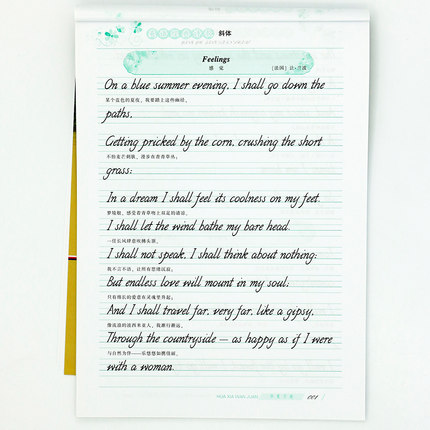 斜体
Feelings
感觉
On a blue summer evening, I shall go down the
某个蓝色的夏夜，我要踏上这些幽径，
paths,
Getting pricked by the corn, crushing the short
不怕麦芒刺肤，漫步在青青草丛，
grass:
In a dream I shall feel its coolness on my feet.
梦境般，感受着青草给土双足的清凉，
I shall let the wind bathe my bare head.
一任长风肆意吹拂头颅。
I shall not speak, I shall think about nothing:
我不言不语，让所有思绪沉寂：
But endless love will mount in my soul;
只有绵长的爱意在灵魂里升起；
And I shall travel far, very far, like a gipsy,
像流浪的波西米亚人，我渐行渐远，
Through the countryside — as happy as if I were
与自然为伴——乐悠悠如携佳丽。
with a woman.
HUA XIA WAN JUAN
001